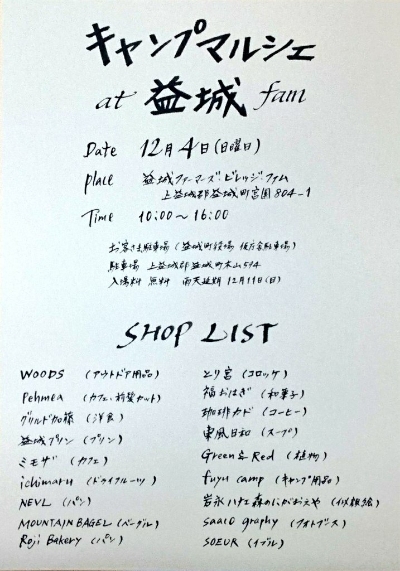 キャンプマルシェ
at 益城 fam
Date 12月4日(日曜日)
place 益城ファーマーズ・ビレッジ・ファム
上益城郡益城町宮園804-1
Time 10:00〜16:00
お客さま駐車場(益城町役場 仮庁舎駐車場)
駐車場 上益城郡益城町木山594
入場料 無料 雨天延期 12月11日(日)
SHOP LIST
WOODS (アウトドア用品)
Pehmea (カフェ・前髪カット)
グリルド加藤 (洋食)
益城プリン (プリン)
ミモザ (カフェ)
ichimaru (ドライフルーツ)
NEVL (パン)
MOUNTAIN BAGEL (ベーグル)
Roji Bakery (パン)
とり宮 (コロッケ)
福おはぎ (和菓子)
珈琲カド (コーヒー)
東風日和 (スープ)
Green & Red (植物)
fuyu camp (キャンプ用品)
岩永ハナエ森のにがおえや (似顔絵)
saaco graphy (フォトブース)
SOEUR (イブル)